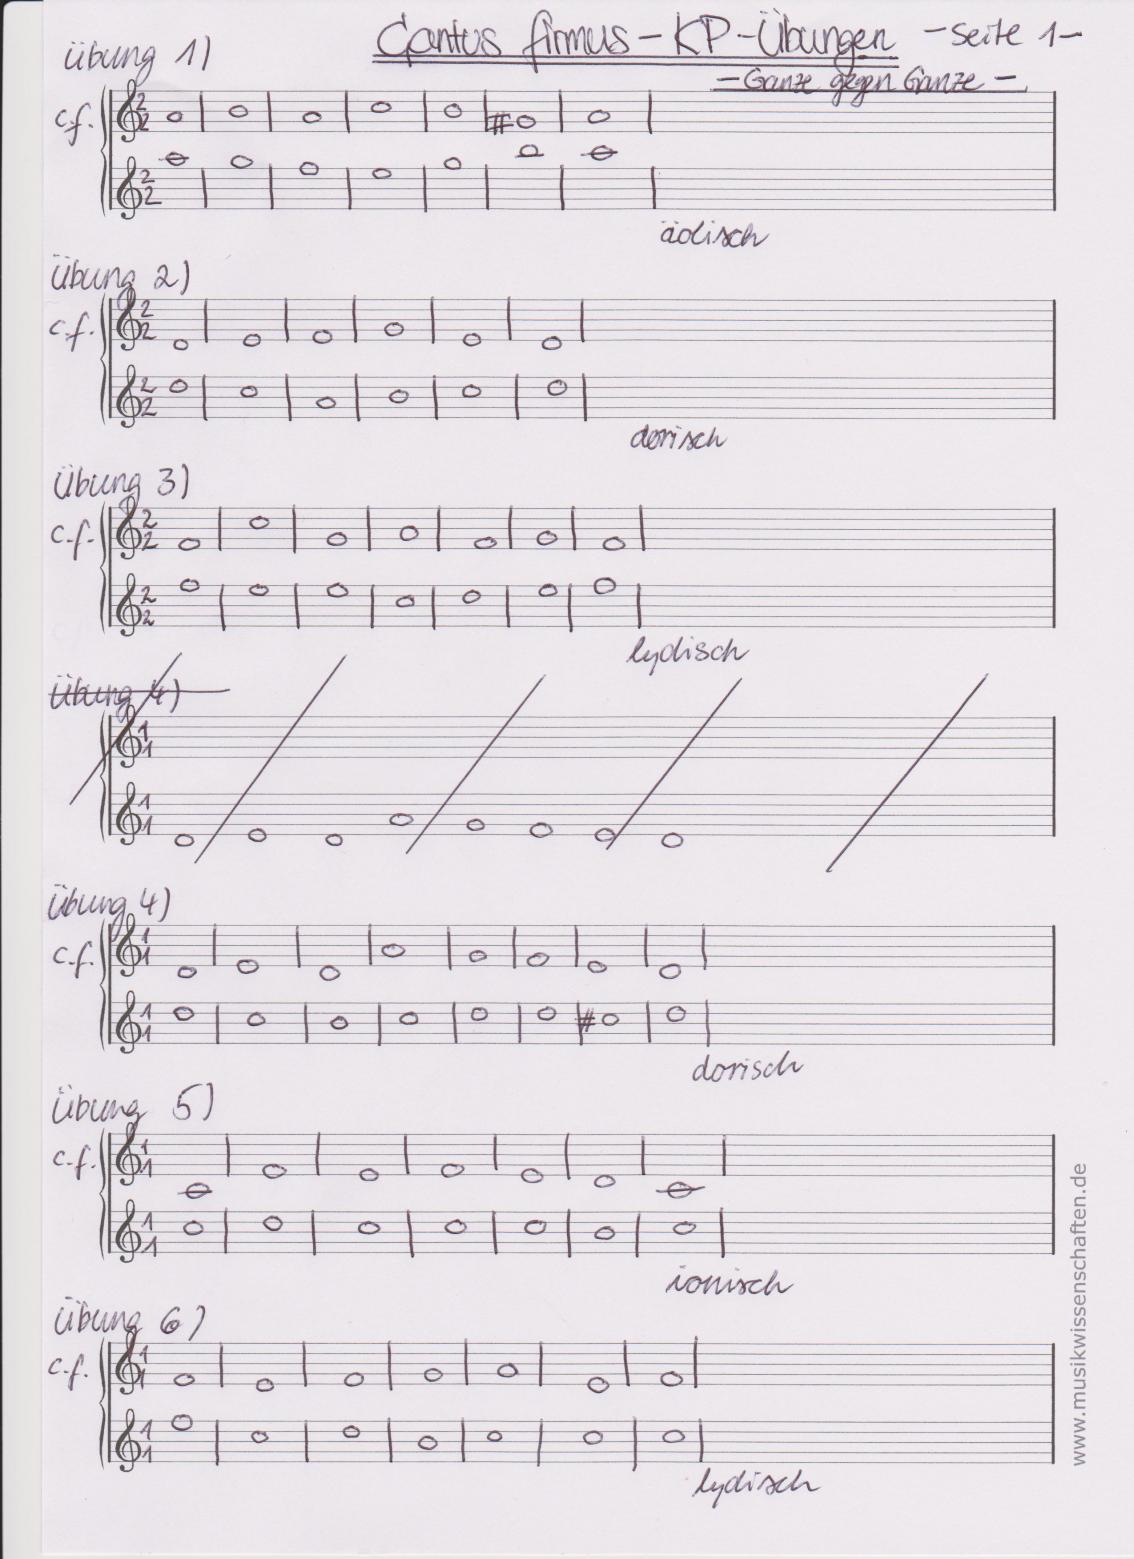 Übung 1) Cantus firmus - KP-Übungen - Seite 1 -
- Ganze gegen Ganze -
c.f. 2 2
2 2
äolisch
Übung 2)
c.f. 2 2
2 2
dorisch
Übung 3)
c.f. 2 2
2 2
lydisch
Übung 4)
1 1
1 1
Übung 4)
c.f. 1 1
1 1
dorisch
Übung 5)
c.f. 1 1
1 1
ionisch
Übung 6)
c.f. 1 1
1 1
lydisch
www.musikwissenschaften.de